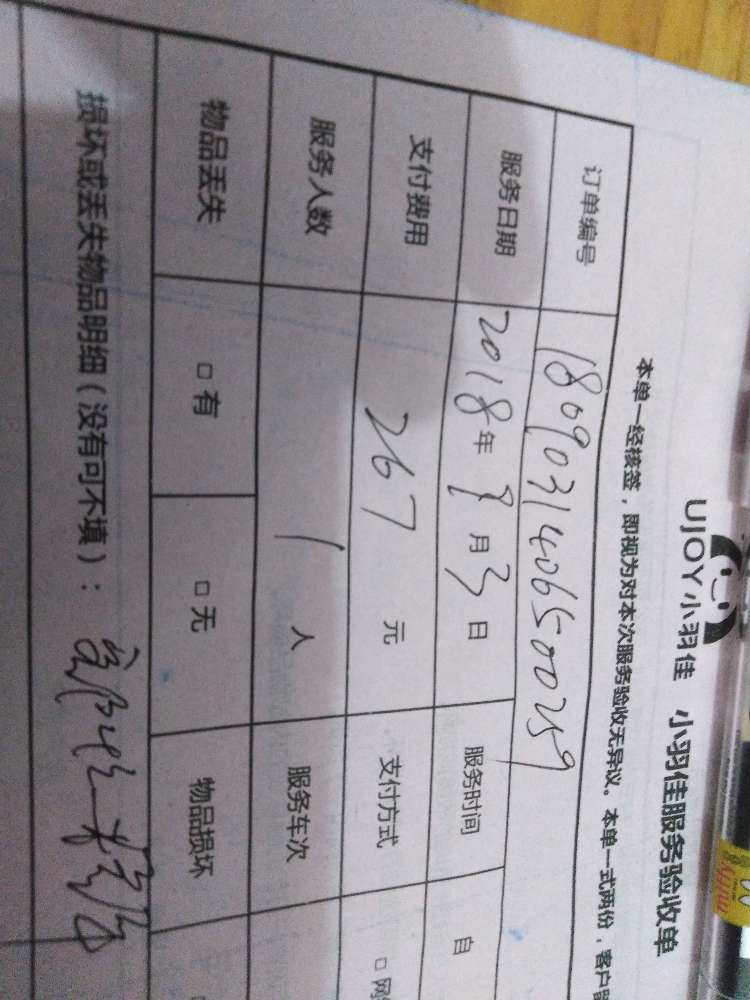 UJOY小羽佳 小羽佳服务验收单
本单一经核签，即视为对本次服务验收无异议。本单一式两份，客户
订单编号 1809031406500259
服务日期 2018年9月3日 服务时间 自
支付费用 267元 支付方式 □网
服务人数 1人 服务车次
物品丢失 □有 □无 物品损坏
损坏或丢失物品明细（没有可不填）：